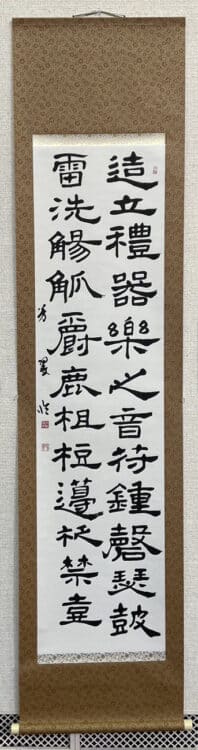 造立禮器樂之音符鍾磬瑟鼓
雷洗觴觚爵鹿柤梪籩柉禁壺